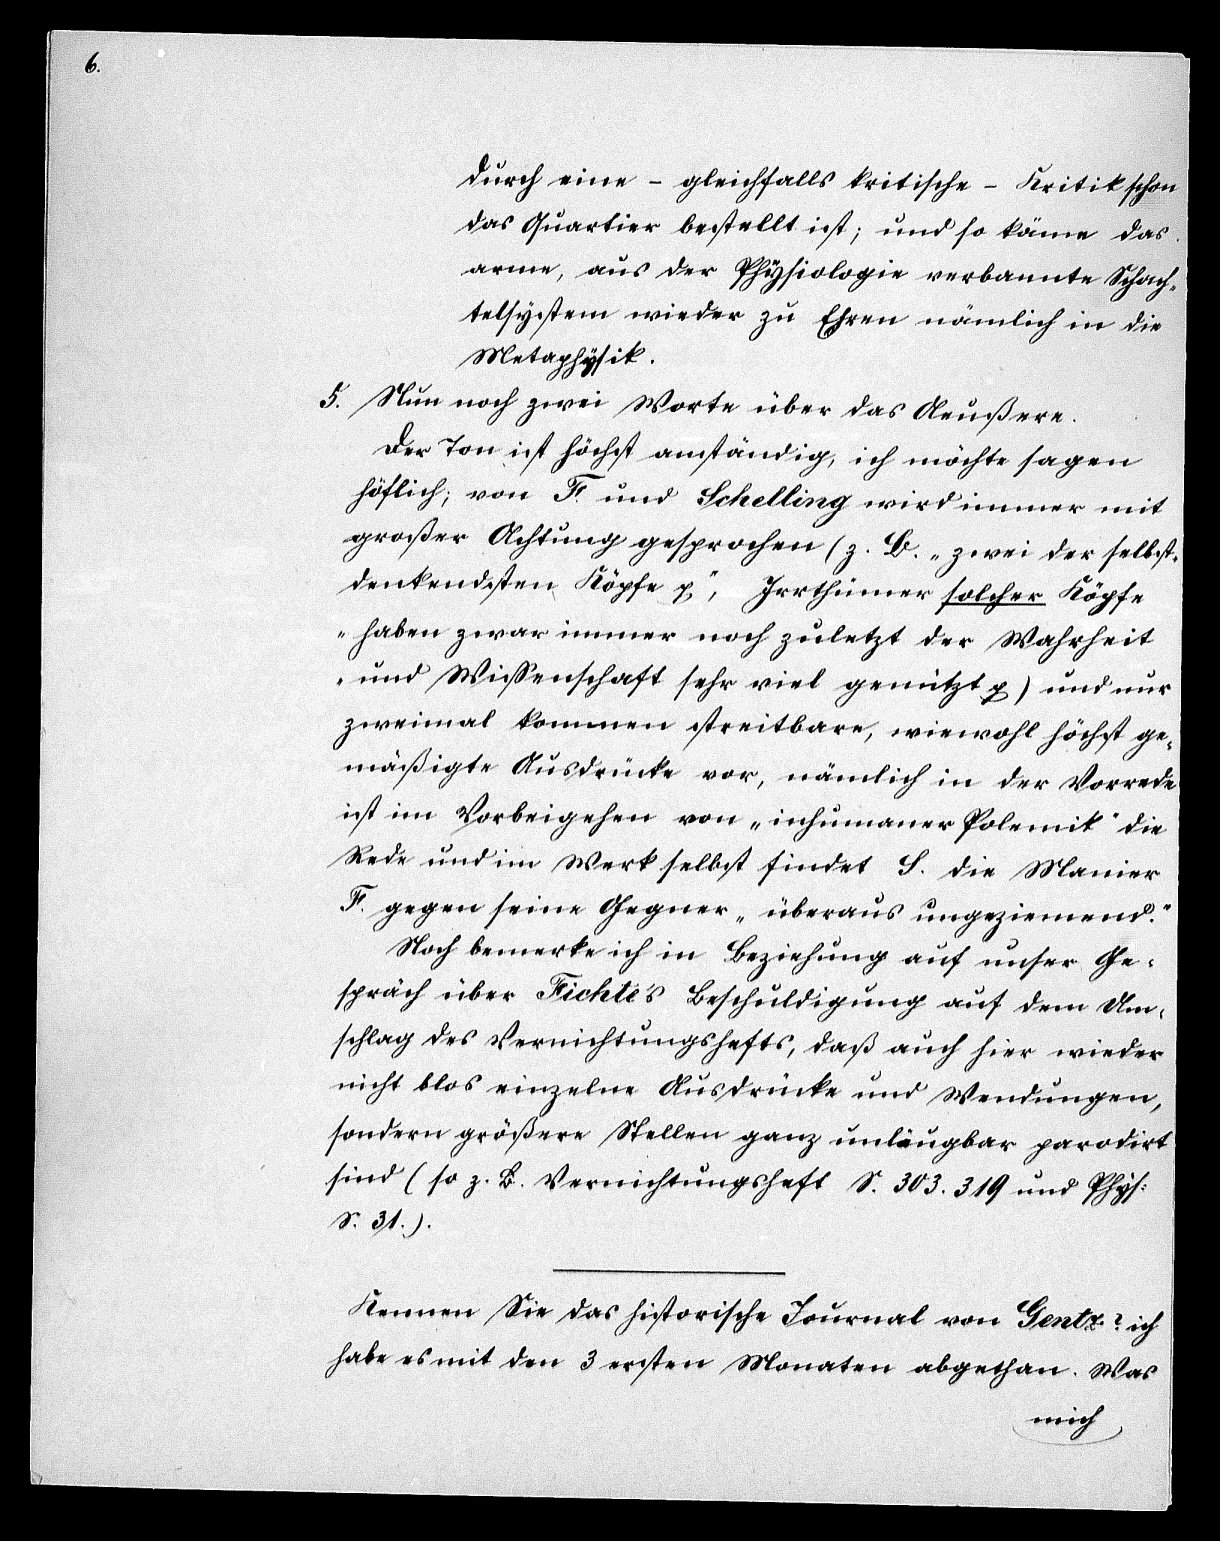 6.
durch eine – gleichfalls kritische – Kritik schon
das Quartier bestellt ist; und so käme das
arme, aus der Physiologie verbannte Schach-
telsystem wieder zu Ehren nämlich in die
Metaphysik.
5. Nun noch zwei Worte über das Aeußere.
Der Ton ist höchst anständig, ich möchte sagen
höflich; von F. und Schelling wird immer mit
großer Achtung gesprochen (z. B. „zwei der selbst-
denkendsten Köpfe p", Irrthümer solcher Köpfe
„haben zwar immer noch zuletzt der Wahrheit
„und Wissenschaft sehr viel genützt p) und nur
zweimal kommen streitbare, wiewohl höchst ge-
mäßigte Ausdrücke vor, nämlich in der Vorrede
ist im Vorbeigehen von „inhumaner Polemik" die
Rede und im Werk selbst findet S. die Manier
F. gegen seine Gegner „überaus ungeziemend."
Noch bemerke ich in Beziehung auf unser Ge-
spräch über Fichte's Beschuldigung auf dem Um-
schlag des Vernichtungshefts, daß auch hier wieder
nicht blos einzelne Ausdrücke und Wendungen,
sondern größere Stellen ganz unläugbar parodirt
sind (so z. B. Vernichtungsheft S. 303. 319 und Phys:
S. 31.).
Kennen Sie das historische Journal von Gentz? ich
habe es mit den 3 ersten Monaten abgethan. Was
mich